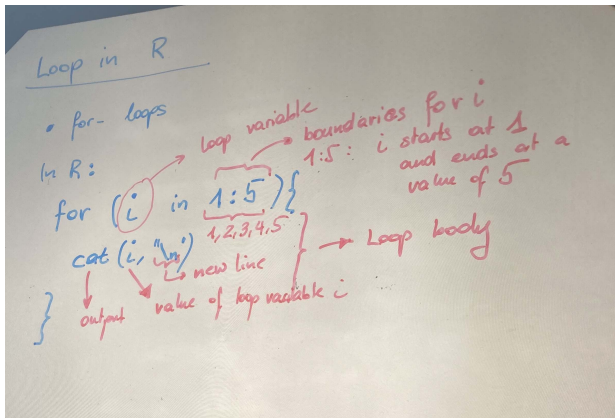 Loop in R
• for- loops
loop variable
boundaries for i
1:5: i starts at 1
and ends at a
value of 5
In R:
for (i in 1:5){
1,2,3,4,5
cat (i, "\n")
new line
Loop body
output
value of loop variable i
}